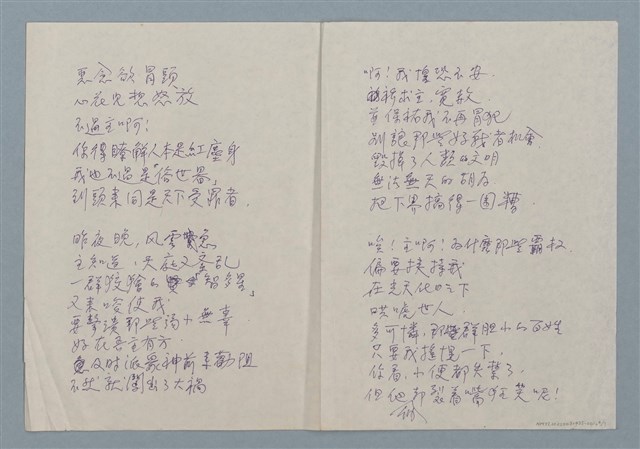 惡念欲冒頭
心花兒想怒放
不過主啊!
你得瞭解人本是紅塵身
我也不過是「俗世器」
到頭來同是天下受罪者.
昨夜晚,風雲驚
主知道,天庭又紊乱
一群狡獪的「智多星」
又來唆使我
要擊潰那些弱小無辜
好在吾主有方
及时派眾神前來勸阻
不然就闖出了大禍
啊!我惶恐不安.
祈求主,寬赦
並保祐我不再冒犯
別讓那些好戰者机會
毀掉了人類的文明
無法無天的胡為
把下界搞得一團糟.
唉!主啊!為什麼那些霸权
偏要挾持我
在光天化日之下
哄唬世人.
多可憐,那群胆小的百姓
只要我搖愰一下.
你看,小便都失禁了.
但他們却裂着嘴狂笑呢!